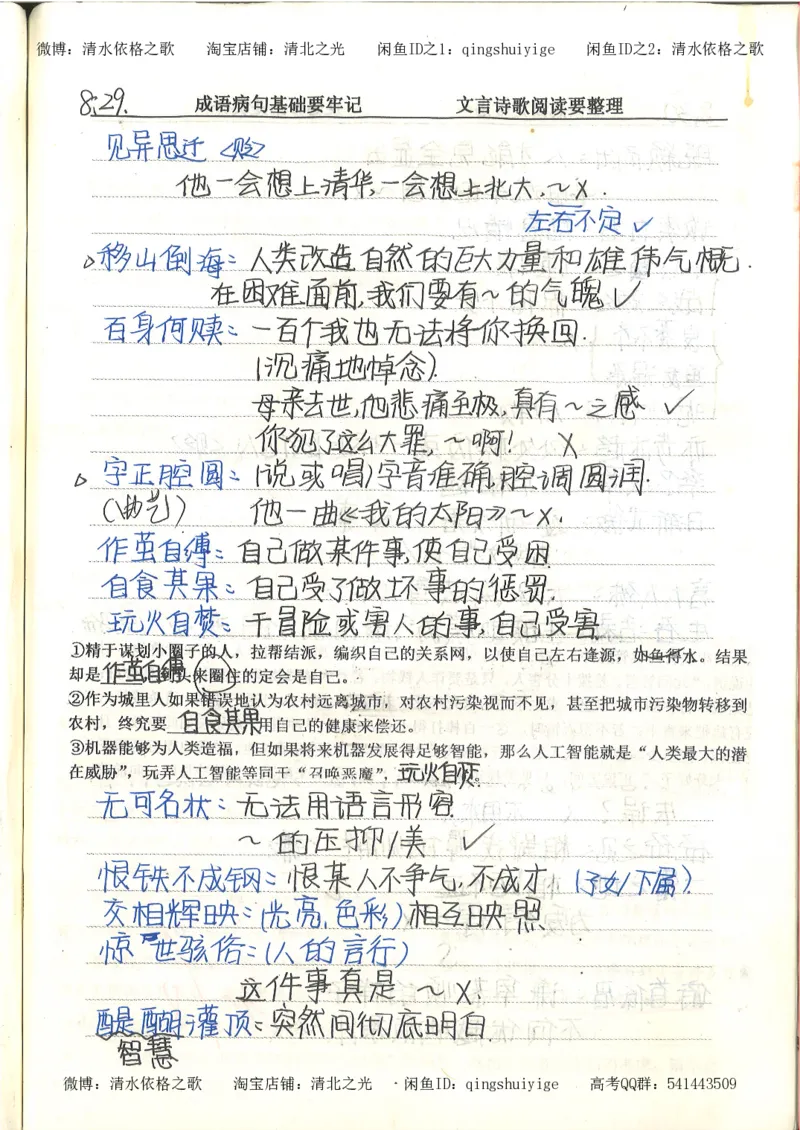 微博：清水依格之歌 淘宝店铺：清北之光 闲鱼ID之1：qingshuiyige 闲鱼ID之2：清水依格之歌
8.29. 成语病句基础要牢记 文言诗歌阅读要整理
见异思迁 <贬>
他一会想上清华,一会想上北大,～×.
左右不定✓
移山倒海：人类改造自然的巨大力量和雄伟气概.
在困难面前,我们要有～的气魄✓
百身何赎：一百个我也无法将你换回.
(沉痛地悼念).
母亲去世,他悲痛至极,真有～之感 ✓
你犯了这么大罪,～啊! ×
字正腔圆：(说或唱)字音准确,腔调圆润.
(曲艺) 他一曲《我的太阳》～×.
作茧自缚：自己做某件事,使自己受困
自食其果：自己受了做坏事的惩罚.
玩火自焚：干冒险或害人的事,自己受害
①精于谋划小圈子的人，拉帮结派，编织自己的关系网，以使自己左右逢源，如鱼得水。结果
却是作茧自缚到头来圈住的定会是自己。
②作为城里人如果错误地认为农村远离城市，对农村污染视而不见，甚至把城市污染物转移到
农村，终究要 自食其果用自己的健康来偿还。
③机器能够为人类造福，但如果将来机器发展得足够智能，那么人工智能就是“人类最大的潜
在威胁”，玩弄人工智能等同于“召唤恶魔”，玩火自焚。
无可名状：无法用语言形容
～的压抑/美 ✓
恨铁不成钢：恨某人不争气,不成才 (子女/下属)
交相辉映：(光亮,色彩)相互映照
惊世骇俗：(人的言行)
这件事真是 ～×.
醍醐灌顶：突然间彻底明白.
智慧
微博：清水依格之歌 淘宝店铺：清北之光 ·闲鱼ID：qingshuiyige 高考QQ群：541443509